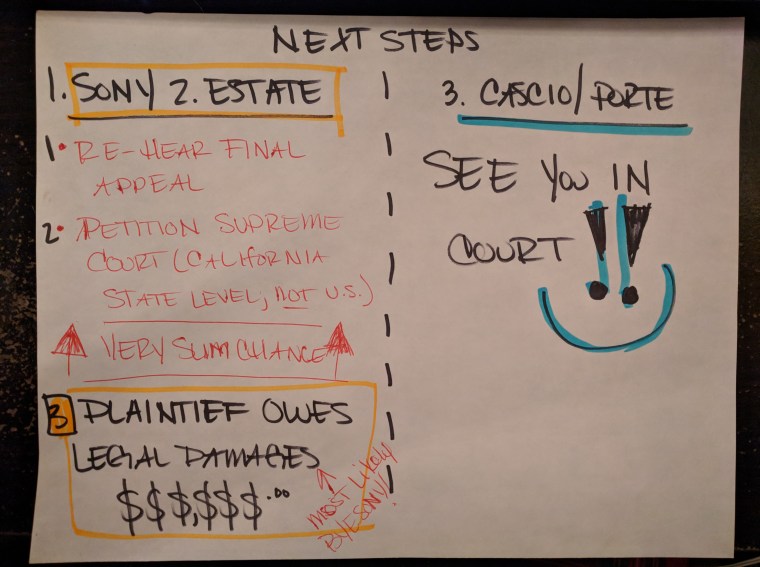 NEXT STEPS
1. SONY 2. ESTATE
1• RE-HEAR FINAL
APPEAL
2• PETITION SUPREME
COURT (CALIFORNIA
STATE LEVEL, NOT U.S.)
VERY SLIM CHANCE
3 PLAINTIEF OWES
LEGAL DAMAGES
$$$,$$$.00
MOST LIKELY
3. CASCIO/PORTE
SEE YOU IN
COURT !!